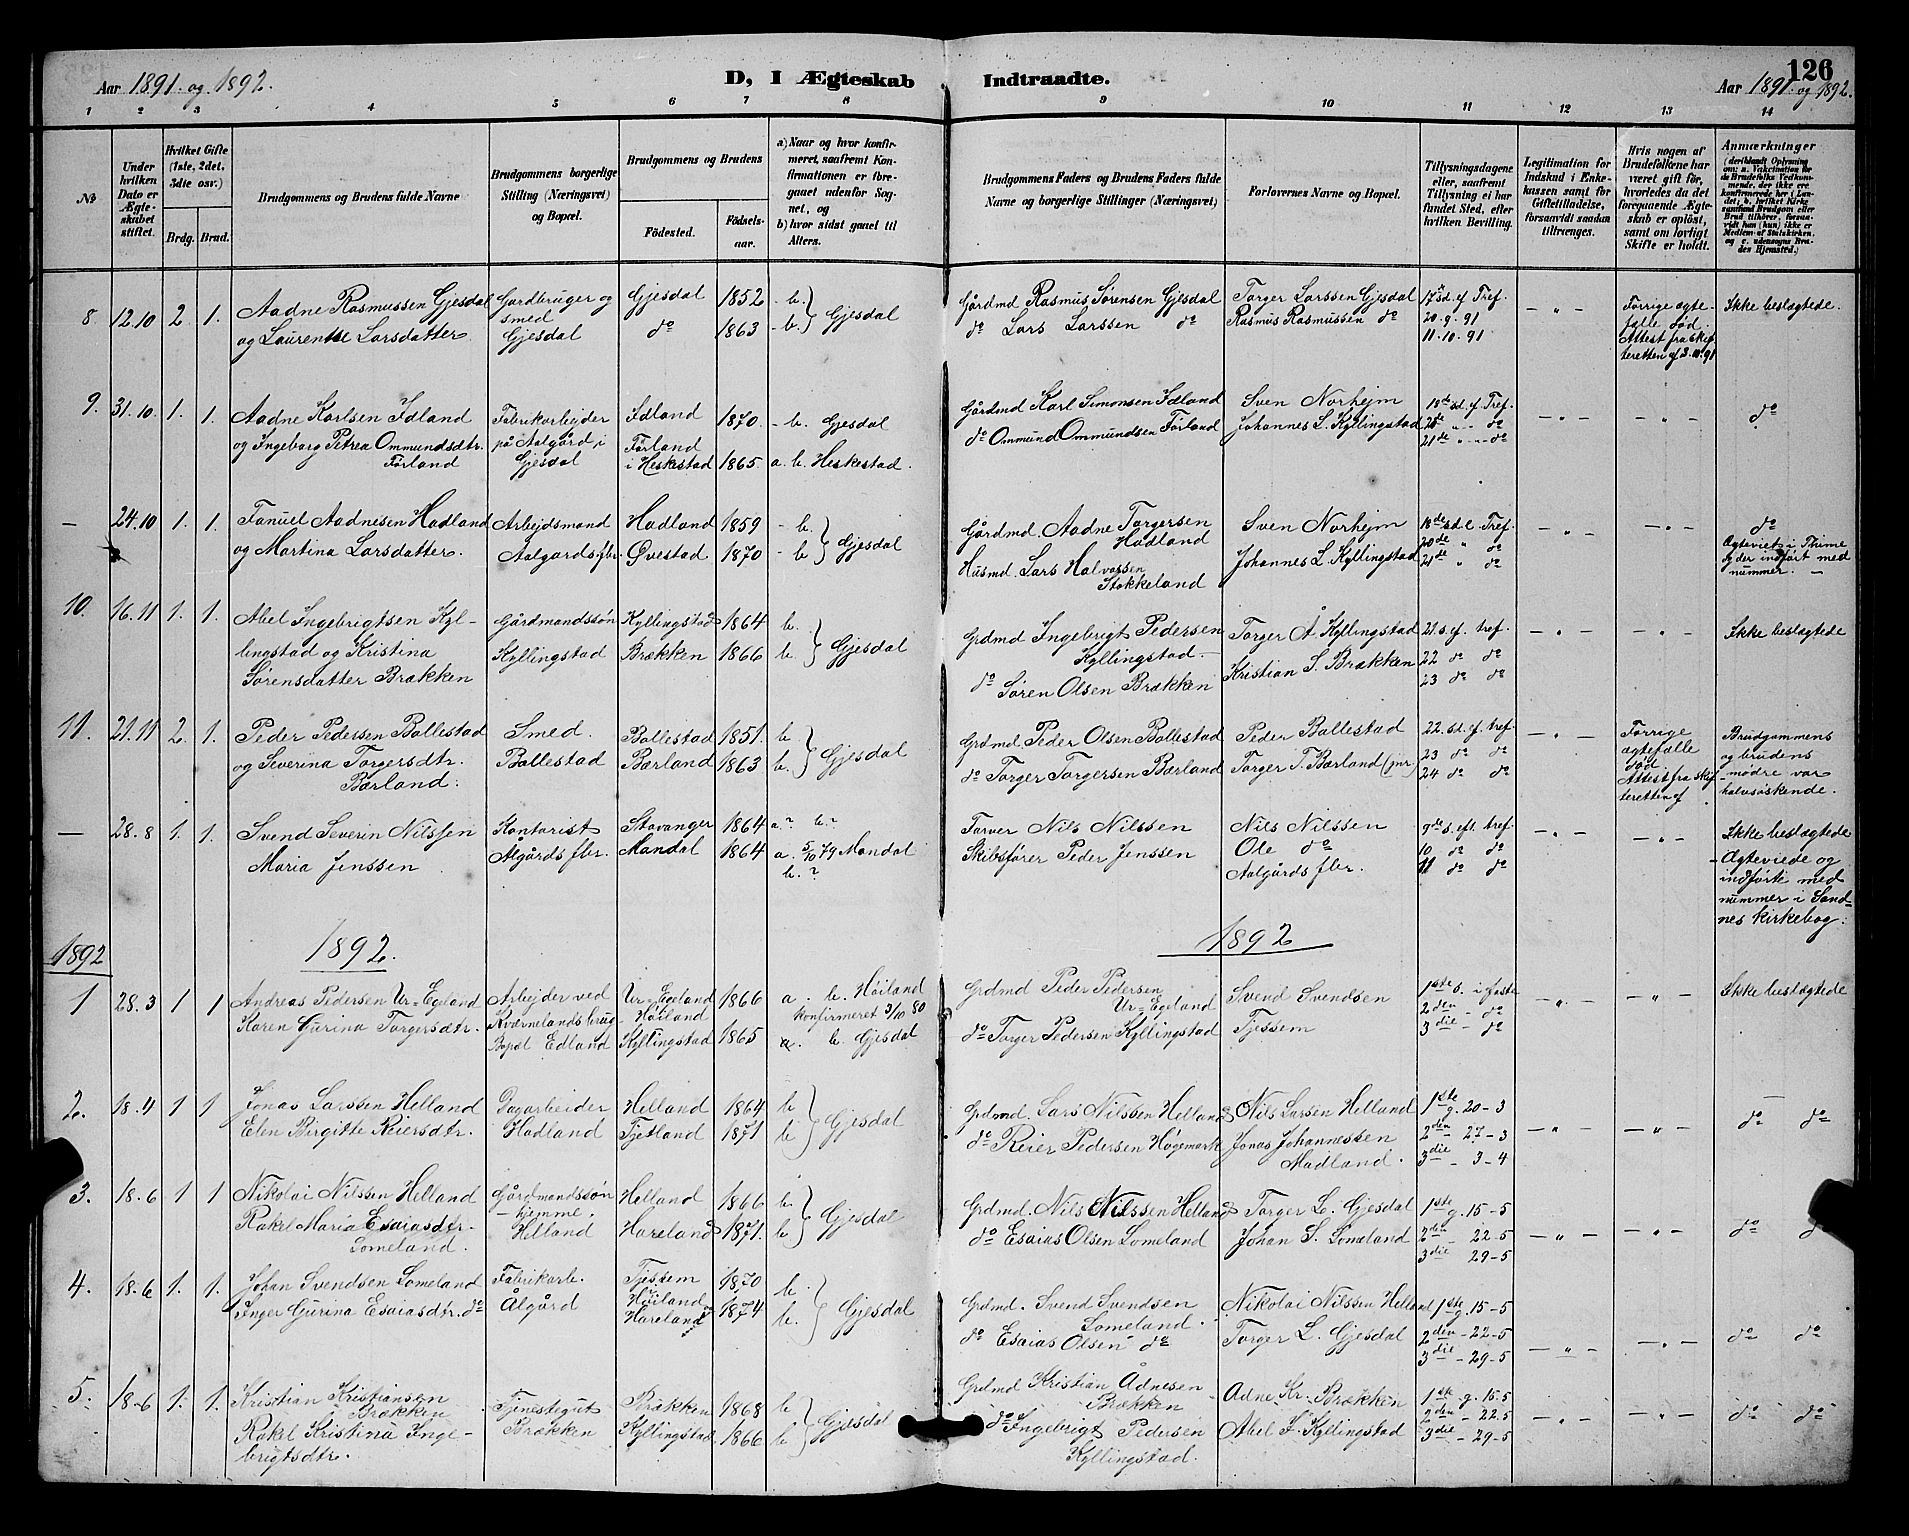 Aar 1891. og 1892.
D, I Ægteskab Indtraadte.
126
Aar 1891. og 1892.
1 2 3 4 5 6 7 8 9 10 11 12 13 14
№
Under hvilken Dato er Ægteskabet stiftet.
Hvilket Gifte (1ste, 2det, 3die osv.)
Brdg. Brud.
Brudgommens og Brudens fulde Navne
Brudgommens borgerlige Stilling (Næringsvei) og Bopæl.
Brudgommens og Brudens
Födested.
Födselsaar.
a) Naar og hvor konfirmeret, saafremt Konfirmationen er foregaaet udenfor Sognet, og
b) hvor sidst gaaet til Alters.
Brudgommens Faders og Brudens Faders fulde Navne og borgerlige Stillinger (Næringsvei)
Forlovernes Navne og Bopæl.
Tillysningsdagene eller, saafremt Tillysning ei har fundet Sted, efter hvilken Bevilling.
Legitimation for Indskud i Enkekassen samt for Giftetilladelse, forsaavidt saadan tiltrænges.
Hvis nogen af Brudefolkene har været gift før, hvorledes da det foregaaende Ægteskab er opløst, samt om lovligt Skifte er holdt.
Anmærkninger
8 12.10 2. 1. Aadne Rasmussen Gjesdal
og Laurentse Larsdatter.
Gardbruger og
smed
Gjesdal
Gjesdal 1852 - b.
do 1863 - b. Gjesdal
Gårdmd Rasmus Sørensen Gjesdal
do Lars Larssen do
Torger Larssen Gjesdal
Rasmus Rasmussen do
17 sd. ef Tref.
20. 9. 91
11. 10. 91
- " -
Forrige ægte-
falle død.
Attest fra skif-
teretten af 3. 10. 91
Ikke beslægtede.
9. 31.10. 1. 1. Aadne Karlsen Idland
og Ingeborg Petrea Ommundsdtr.
Førland
Fabrikarbejder
på Aalgård i
Gjesdal
Idland 1870. - b. Gjesdal
Førland
i Heskestad 1865. a. b. Heskestad.
Gårdmd Karl Simonsen Idland
do Ommund Ommundsen Førland
Sven Norhejm
Johannes L. Kyllingstad
18de sd. ef Tref.
do
21de " - do
- " -
"
do
- 24.10 1. 1. Fanuel Aadnesen Hadland
og Martina Larsdatter.
Arbejdsmand
Aalgårds fbr.
Hadland 1859 - b.
Øvestad 1870 - b Gjesdal
Gårdmd. Aadne Torgersen
Hadland
Husmd. Lars Halvorsen
Stokkeland
Sven Norhejm
Johannes L. Kyllingstad
18de sd. e. Tref.
20de " do
21de " do
- " -
- " -
do
Ægteviet i Thime
og der indført med
nummer. -
10. 16.11 1. 1. Abel Ingebrigtsen Kyl-
lingstad og Kristina
Sørensdatter Brækken
Gårdmandssøn
Kyllingstad
Kyllingstad 1864 b.
Brækken 1866 b. Gjesdal
Grdmd Ingebrigt Pedersen
Kyllingstad
do Søren Olsen Brækken
Torger Å Kyllingstad
Kristian S. Brækken
21. s. ef. tref.
22 do do
23 do do
- " -
- " -
Ikke beslægtede
11. 21.11 2. 1. Peder Pedersen Ballestad
og Severina Torgersdtr.
Bærland.
Smed.
Ballestad
Ballestad 1851. b
Bærland 1863 b. Gjesdal
Grdmd. Peder Olsen Ballestad
do Torger Torgersen Bærland
Peder Ballestad
Torger T. Bærland (jnr)
22. sd. ef. tref.
23 do do
24 do do
- " -
Førrige
ægtefalle
død
Attest fra skif-
teretten af
Brudgommens
og brudens
mødre var
halvsøskende.
- 28.8 1. 1. Svend Severin Nilssen
Maria Jenssen
Kontorist
Algårds fbr.
Stavanger 1864 a.? b.?
Mandal 1864 a. 5/10 79 Mandal
b. ?
Farver Nils Nilssen
Skibsfører Peder Jenssen
Nils Nilssen
Ole do
Aalgårds fbr.
9de s. eft. tref.
10 do do
11 do do
- " -
- " -
Ikke beslægtede
- Ægteviede og
indførte med
nummer i Sand-
nes kirkebog.
1892 1892. 1892
1 28.3 1 1 Andreas Pedersen Ur=Egeland
Karen Gurina Torgersdtr.
Arbejder ved
Kværnelands brug
Bopæl Edland
Ur=Egeland
Høiland 1866 a. b. Höiland
konfirmeret 3/10 80
Kyllingstad 1865 a. b. Gjesdal
Grdmd Peder Pedersen
Ur=Egeland
do Torger Pedersen Kyllingstad
Svend Svendsen
Tjessem
1ste s. i faste
2den - do
3die - do
- " -
- " -
Ikke beslægtede
2. 18.4 1 1 Jonas Larssen Helland
Elen Birgitte Reiersdtr.
Dagarbeider
Hadland
Helland 1864 b
Tjetland 1871 b Gjesdal
Grdmd. Lars Nilssen Helland
do Reier Pedersen Høgemark
Nils Larsen Helland
Jonas Johannessen
Madland.
1ste g. 20-3
2den - 27-3
3die - 3-4
- " -
- " -
do do
3. 18.6 1 1 Nikolai Nilssen Helland
Rakel Maria Esaiasdtr.
Lomeland.
Gårdmandssøn
- hjemme.
Helland
Helland 1866 b.
Hareland 1871. b Gjesdal
Grdmd. Nils Nilssen Helland
do Esaias Olsen Lomeland
Torger L. Gjesdal
Johan S. Lomeland
1ste g. 15-5
2den - 22-5
3die - 29-5
- " -
- " -
do do
4. 18.6 1. 1. Johan Svendsen Lomeland
Inger Gurina Esaiasdtr. do
Fabrikarb.
Ålgård
Tjessem
i Høiland 1870 b.
Hareland 1874 b. Gjesdal
Grdmd. Svend Svendsen
Lomeland.
do Esaias Olsen do
Nikolai Nilssen Helland
Torger L. Gjesdal
1ste g. 15-5
2den - 22-5
3die - 29-5
- " -
- " -
do do
5. 18-6 1. 1. Kristian Kristiansen
Brækken
Rakel Kristina Inge-
brigtsdtr.
Tjenestegut
Brækken
Brækken 1868 b
Kyllingstad 1866 b Gjesdal
Grdmd Kristian Ådnesen
Brækken
do Ingebrigt Pedersen
Kyllingstad.
Adne Kr. Brækken
Abel I. Kyllingstad
1ste g. 15.5
2den - 22.5
3die - 29-5
- " -
- " -
do do